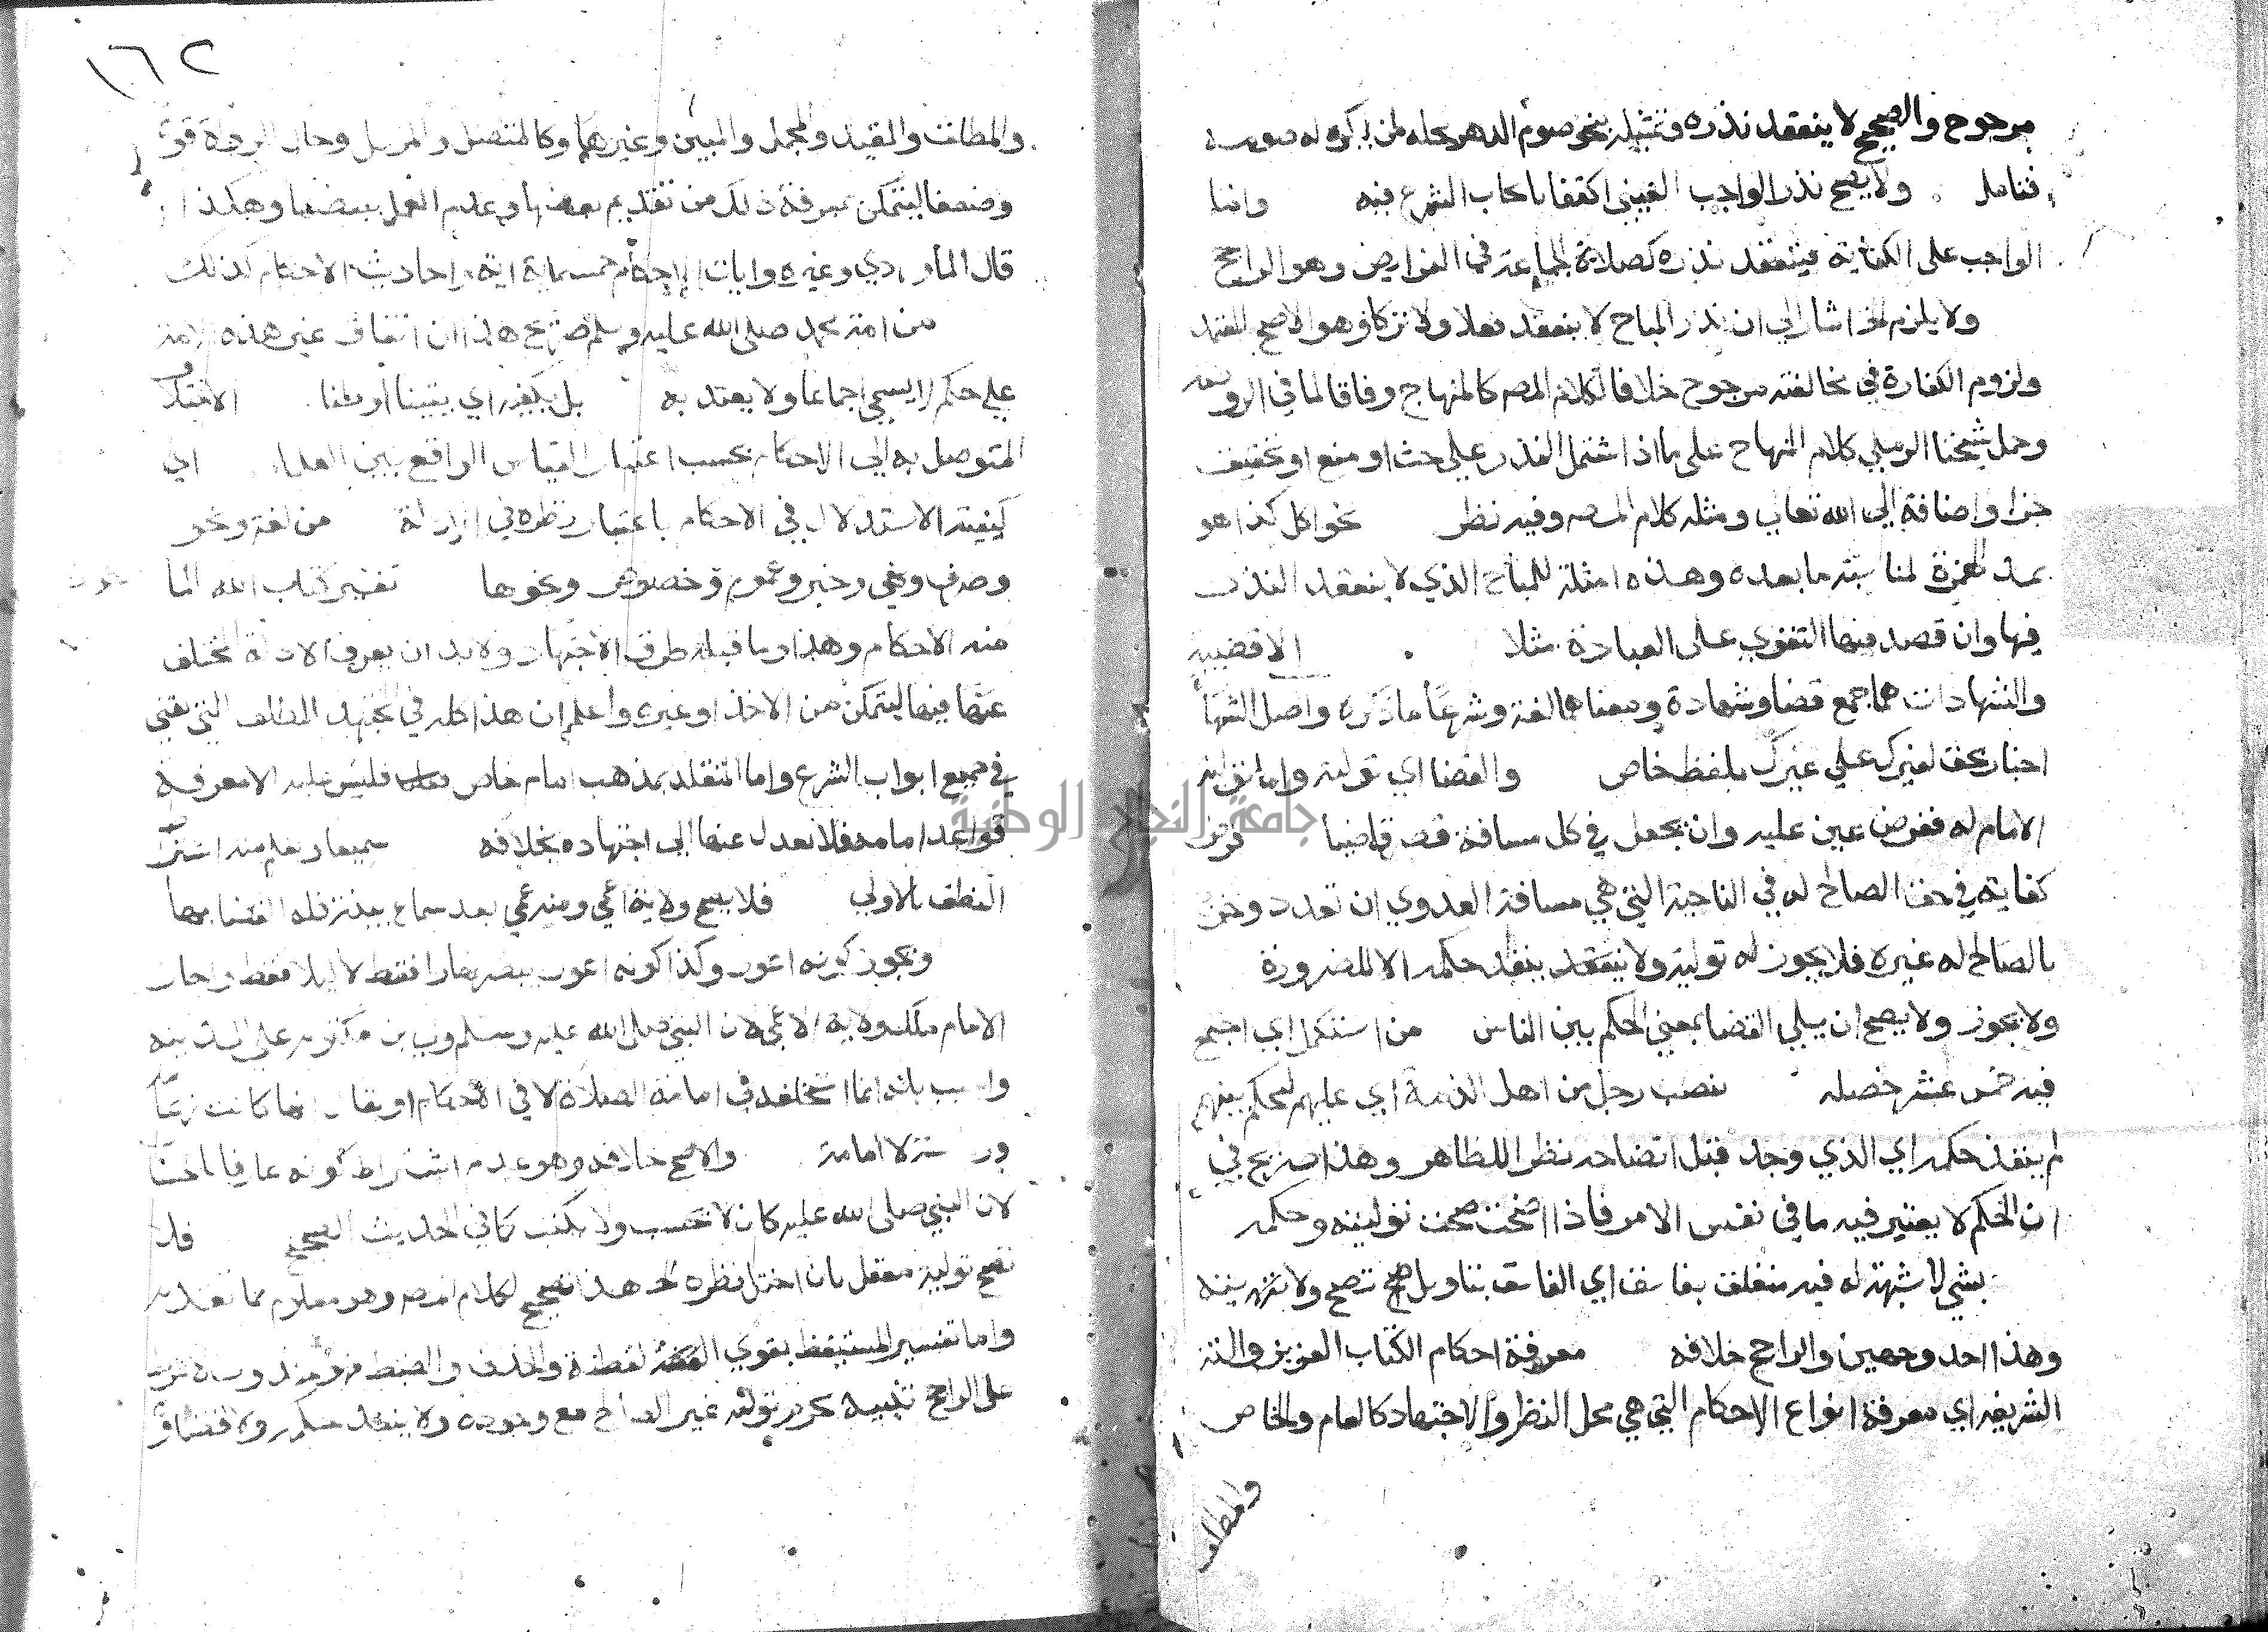 مرجوح والصحيح لا ينعقد نذره وتمثيله بنحو صوم الدهر محله لمن يكره له صومه
فتامل ولا يصح نذر الواجب العيني اكتفا بايجاب الشرع فيه واما
الواجب على الكفاية فينعقد نذره كصلاة الجماعة في الفرايض وهو الراجح
ولا يلزم الخ اشار الي ان نذر المباح لا ينعقد فعلا ولا تركا وهو الاصح المعتمد
ولزوم الكفارة في مخالفته مرجوح خلافا لكلام المصـ كالمنهاج وفاقا لما في الروضة
وحمل شيخنا الرملي كلام المنهاج على ما اذا اشتمل النذر علي حث او منع او تخفيف
خبرا واضافة الي الله تعالي ومثله كلام المصـ وفيه نظر نحو اكل كذا هو
بمد الهمزة لمناسبته ما بعده وهذه امثلة للمباح الذي لا ينعقد النذر
فيها وان قصد منها التقوي على العبادة مثلا الاقضية
والشهادات هما جمع قضا وشهادة ومعناهما لغة وشرعا ما ذكره واصل الشها
اخبار بحق لغيرك علي غيرك بلفظ خاص والقضا اي توليته واما تولية
الامام له ففرض عين عليه وان يجعل في كل مسافة قصر قاضيا فرض
كفاية في حق الصالح له في الناحية التي هي مسافة العدوي ان تعدد وخرج
بالصالح له غيره فلا يجوز له توليته ولا ينعقد بنفذ حكمه الا للضرورة
ولا يجوز ولا يصح ان يلي القضا بمعني الحكم بين الناس من استكمل اي اجتمع
فيه خمس عشر خصله نصب رجل من اهل الذمة اي عليهم ليحكم بينهم
لم ينفذ حكمه اي الذي وجد قبل اتضاحه نظرا للظاهر وهذا صريح في
ان الحكم لا يعتبر فيه ما في نفس الامر فاذا اتضحت صحت توليته وحكمه
بشي لا شبهة له فيه متعلق بفاسق اي الفاسق بتاويل صحيح تصح ولايته
وهذا احد وجهين والراجح خلافه معرفة احكام الكتاب العزيز والسنة
الشريفه اي معرفة انواع الاحكام التي هي محل النظر والاجتهاد كالعام والخاص
والمطلق
١٦٢
والمطلق والمقيد والمجمل والمبين وغيرهما وكالمتصل والمرسل وحال الرواة قوة
وضعفا ليتمكن بمعرفة ذلك من تقديم بعضها وعليه العمل ببعضها وهكذا
قال الماوردي وغيره وايات الاحكام خمسماية اية واحاديث الاحكام كذلك
من امة محمد صلى الله عليه وسلم صريح هذا ان اتفاق غير هذه الامة
علي حكم لا يسمي اجماعا ولا يعتد به بل يكفيه اي يقينا او ظنا
المتوصل به الي الاحكام بحسب اعتبار القياس الواقع بين العلماء اي
كيفية الاستدلال في الاحكام باعتبار نظره في الادلة من لغة ونحو
وصرف ونفي وخبر وعموم وخصوص ونحوها تفسير كتاب الله
منه الاحكام وهذا وما قبله طرق الاجتهاد ولا بد ان يعرف الادلة المختلف
عنها فيها ليتمكن من الاخذ او غيره واعلم ان هذا كله في المجتهد المطلق التي يفتي
في جميع ابواب الشرع واما المتقلد بمذهب امام خاص فليس عليه الا معرفة
قواعد امامه فلا يعدل عنها الي اجتهاده بخلافه سميعا وعلم منه
النطق بالاولي فلا يصح ولاية اعمي ومنه عمي بعد سماع بينة فله القضا بها
ويجوز كونه اعور وكذا كونه اعور يبصر نهارا فقط لا ليلا فقط وجاز
الامام مالك ولاية الاعمي لان النبي صلى الله عليه وسلم وب بن مكتوم على المدينه
واجيب بانه انما استخلفه في امامة الصلاة لا في الاحكام او يقال انها كانت
لا امامة والاصح خلافه وهو عدم اشتراط كونه عارفا بالحساب
لان النبي صلى الله عليه كان لا يحسب ولا يكتب كما في الحديث الصحيح فلا
تصح تولية مغفل بان اختل نظره الخ هذا تصحيح لكلام المصـ وهو معلوم مما تقدم
واما تفسير المستيقظ بقوي الفطنة والحذق والضبط
على الراجح تنبيه يحرم تولية غير الصالح مع وجوده ولا ينفذ حكمه ولا قضاؤ